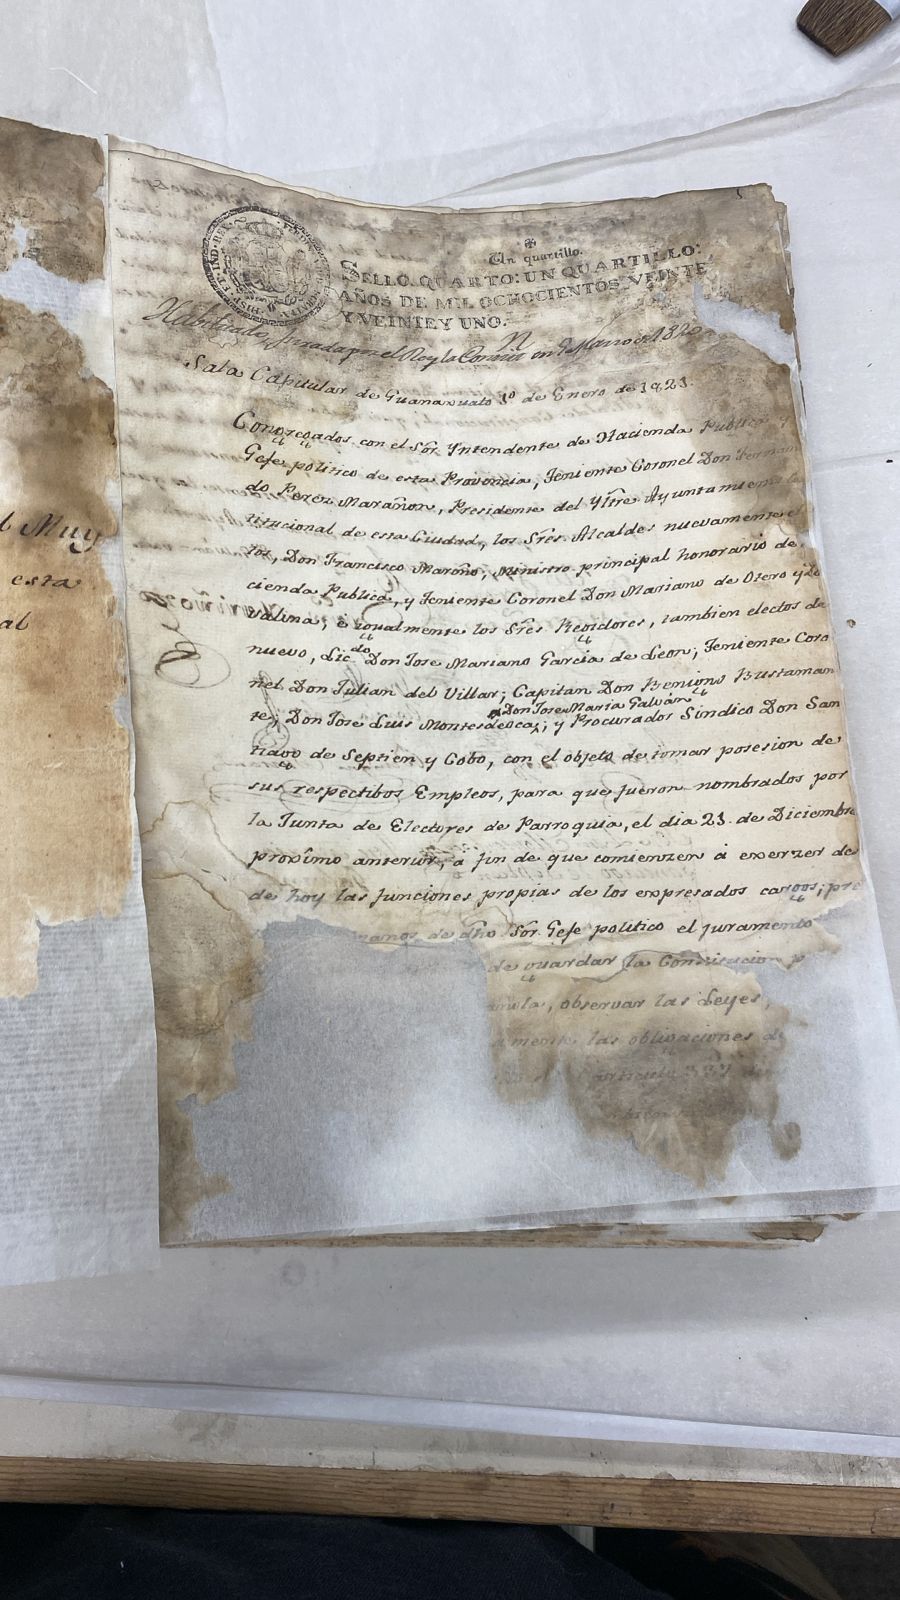 l Muy
esta
al
5
Un quartillo.
SELLO QUARTO: UN QUARTILLO:
AÑOS DE MIL OCHOCIENTOS VEINTE
Y VEINTE Y UNO.
Habilitado, jurada por el Rey la Constit.n en 9 Marzo de 1820
Sala Capitular de Guanaxuato 1º de Enero de 1821.
Congregados con el Sor. Yntendente de Hacienda Publica y
Gefe politico de esta Provincia, Teniente Coronel Don Fernan
do Perez Marañon, Presidente del Yltre. Ayuntamiento
titucional de esta Ciudad, los Sres. Alcaldes nuevamente e
tos, Don Francisco Mariño, Ministro principal honorario de
cienda Publica, y Teniente Coronel Don Mariano de Otero y Do
valina; é igualmente los Sres. Regidores, tambien electos de
nuevo, Lic.do Don Jose Mariano Garcia de Leon; Teniente Coro
nel Don Julian del Villar; Capitan Don Benigno Bustaman
Don Jose Maria Galvan
te; Don Jose Luis Montesdeoca; y Procurador Sindico Don San
tiago de Septien y Cobo, con el objeto de tomar posesion de
sus respectibos Empleos, para que fueron nombrados por
la Junta de Electores de Parroquia, el dia 21. de Diciembre
proximo anterior, á fin de que comienzen á exerzer de
de hoy las funciones propias de los expresados cargos; pre
manos de dho. Sor. Gefe politico el juramento
de guardar la Constitucion
observar las Leyes,
las obligaciones de
articulo 337